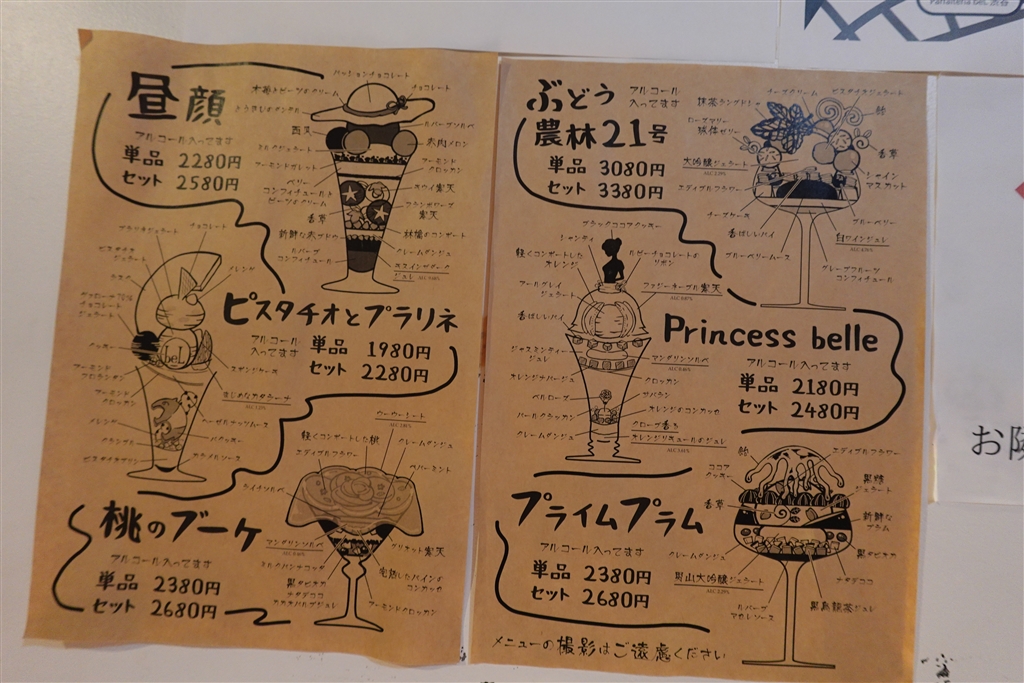 Parlaiteria beL 渋谷
昼顔
アルコール入ってます
単品 2280円
セット 2580円
パッションチョコレート
チョコレート
ルバーブソルベ
赤肉メロン
アーモンド
クロッカン
キウイ寒天
フランボワーズ
寒天
林檎のコンポート
クレームダンジュ
西瓜
ミルクジェラート
ベリー
コンフィチュールと
ビーツクリーム
香草
新鮮な赤ブドウ
ルバーブ
コンフィチュール
ピスタチオとプラリネ
アルコール
入ってます
単品 1980円
セット 2280円
プラリネジェラート
チョコレート
ピスタチオ
ジェラート
メレンゲ
チョコレート
ジェラート
クッキー
beL
スポンジケーキ
アーモンド
フロランタン
アーモンド
クロッカン
ヘーゼルナッツムース
メレンゲ
クランブル
キャラメルソース
ピスタチオプリン
桃のブーケ
アルコール入ってます
単品 2380円
セット 2680円
軽くコンポートした桃
クレームダンジュ
エディブルフラワー
ペパーミント
ライチソルベ
マンダリンソルベ
ミルクパンナコッタ
黒タピオカ
ナタデココ
カカオパルプジュレ
アーモンドクロッカン
ぶどう
農林21号
アルコール
入ってます
単品 3080円
セット 3380円
抹茶ラングドシャ
チーズクリーム
ピスタチオジェラート
飴
ローズマリー
球体ゼリー
香草
大吟醸ジェラート
シャイン
マスカット
エディブルフラワー
チーズケーキ
ブルーベリー
香ばしいパイ
白ワインジュレ
ブルーベリームース
グレープフルーツ
コンフィチュール
Princess belle
アルコール入ってます
単品 2180円
セット 2480円
ブラックココアクッキー
シャンティ
軽くコンポートした
オレンジ
ルビーチョコレートの
リボン
アールグレイ
ジェラート
香ばしいパイ
ジャスミンティー
ジュレ
マンダリンソルベ
クロッカン
サバラン
クレームダンジュ
クローブ香る
オレンジリキュールのジュレ
プライムプラム
アルコール入ってます
単品 2380円
セット 2680円
飴
エディブルフラワー
ココア
クッキー
黒糖
ジェラート
香草
新鮮な
プラム
クレームダンジュ
黒タピオカ
ナタデココ
ルバーブ
黒烏龍茶ジュレ
メニューの撮影はご遠慮ください